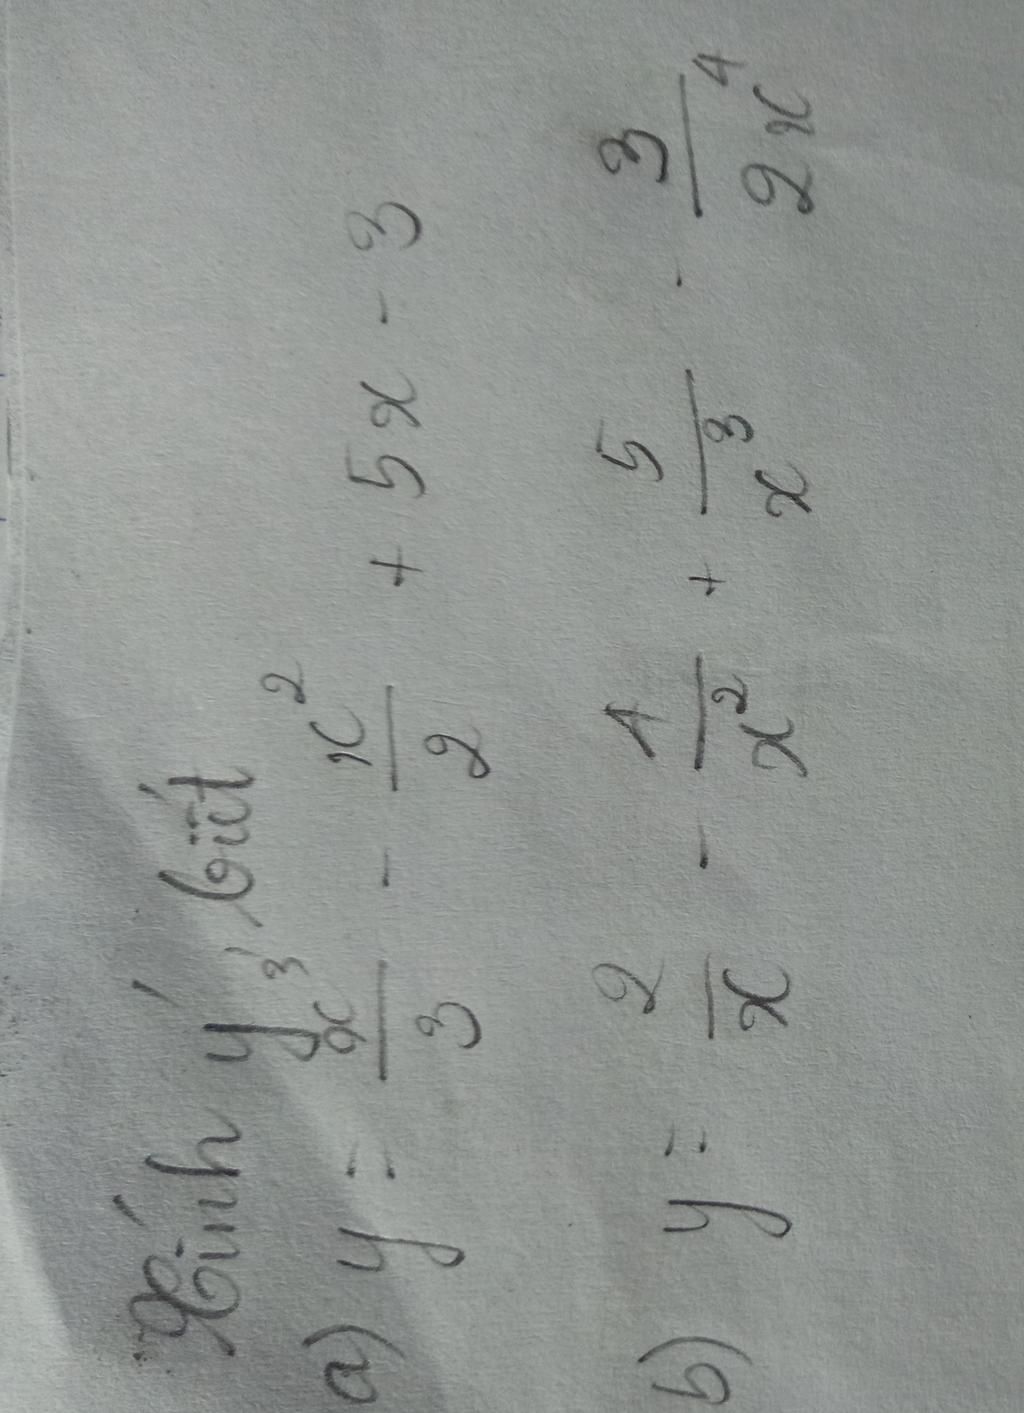 Tính y', biết
a) y = x³/3 - x²/2 + 5x - 3
b) y = 2/x - 1/x² + 5/x³ - 3/2x⁴